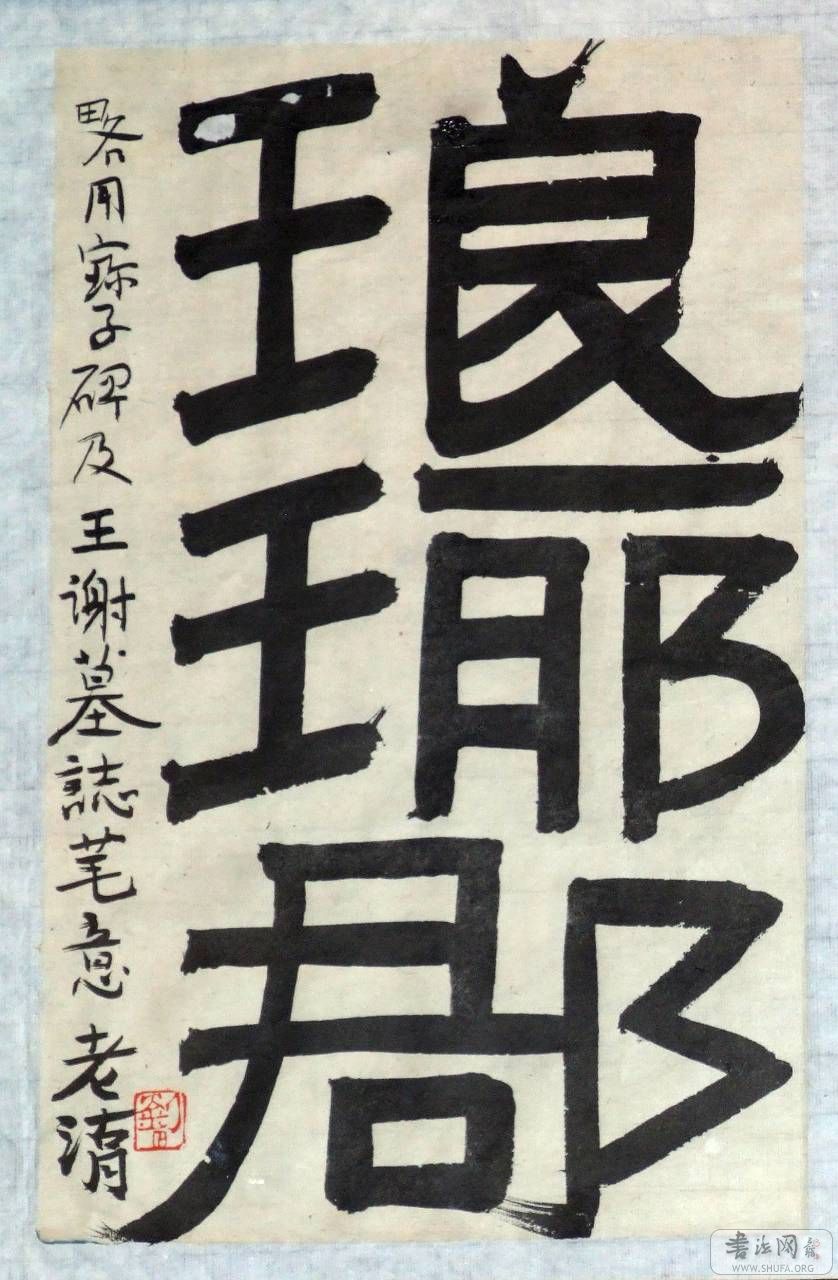 琅瑘郡
略用寳子碑及王谢墓誌笔意 老清
书法网
WWW.SHUFA.ORG